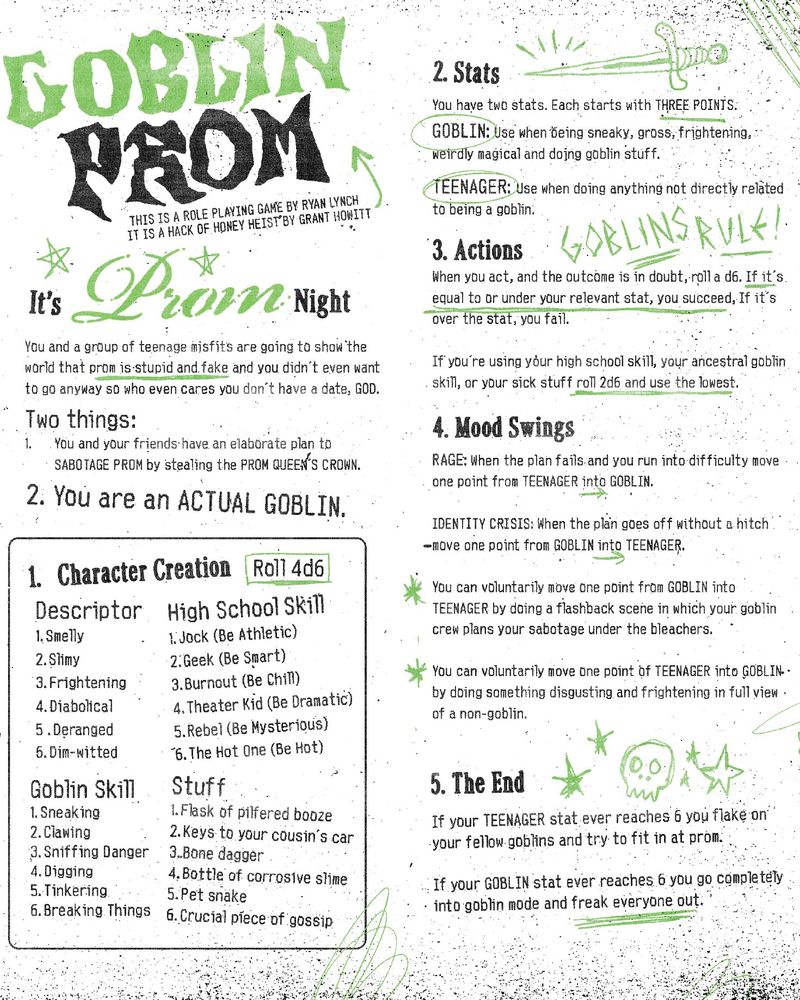 GOBLIN
PROM
THIS IS A ROLE PLAYING GAME BY RYAN LYNCH
IT IS A HACK OF HONEY HEIST BY GRANT HOWITT
It's Prom Night
You and a group of teenage misfits are going to show the
world that prom is stupid and fake and you didn't even want
to go anyway so who even cares you don't have a date, GOD.
Two things:
1. You and your friends have an elaborate plan to
SABOTAGE PROM by stealing the PROM QUEEN'S CROWN.
2. You are an ACTUAL GOBLIN.
1. Character Creation Roll 4d6
Descriptor
1. Smelly
2. Slimy
3. Frightening
4. Diabolical
5. Deranged
6. Dim-witted
High School Skill
1. Jock (Be Athletic)
2. Geek (Be Smart)
3. Burnout (Be Chill)
4. Theater Kid (Be Dramatic)
5. Rebel (Be Mysterious)
6. The Hot One (Be Hot)
Goblin Skill
1. Sneaking
2. Clawing
3. Sniffing Danger
4. Digging
5. Tinkering
6. Breaking Things
Stuff
1. Flask of pilfered booze
2. Keys to your cousin's car
3. Bone dagger
4. Bottle of corrosive slime
5. Pet snake
6. Crucial piece of gossip
2. Stats
You have two stats. Each starts with THREE POINTS.
GOBLIN: Use when being sneaky, gross, frightening,
weirdly magical and doing goblin stuff.
TEENAGER: Use when doing anything not directly related
to being a goblin.
GOBLINS RULE!
3. Actions
When you act, and the outcome is in doubt, roll a d6. If it's
equal to or under your relevant stat, you succeed, If it's
over the stat, you fail.
If you're using your high school skill, your ancestral goblin
skill, or your sick stuff roll 2d6 and use the lowest.
4. Mood Swings
RAGE: When the plan fails and you run into difficulty move
one point from TEENAGER into GOBLIN.
IDENTITY CRISIS: When the plan goes off without a hitch
move one point from GOBLIN into TEENAGER.
You can voluntarily move one point from GOBLIN into
TEENAGER by doing a flashback scene in which your goblin
crew plans your sabotage under the bleachers.
You can voluntarily move one point of TEENAGER into GOBLIN
by doing something disgusting and frightening in full view
of a non-goblin.
5. The End
If your TEENAGER stat ever reaches 6 you flake on
your fellow goblins and try to fit in at prom.
If your GOBLIN stat ever reaches 6 you go completely
into goblin mode and freak everyone out.